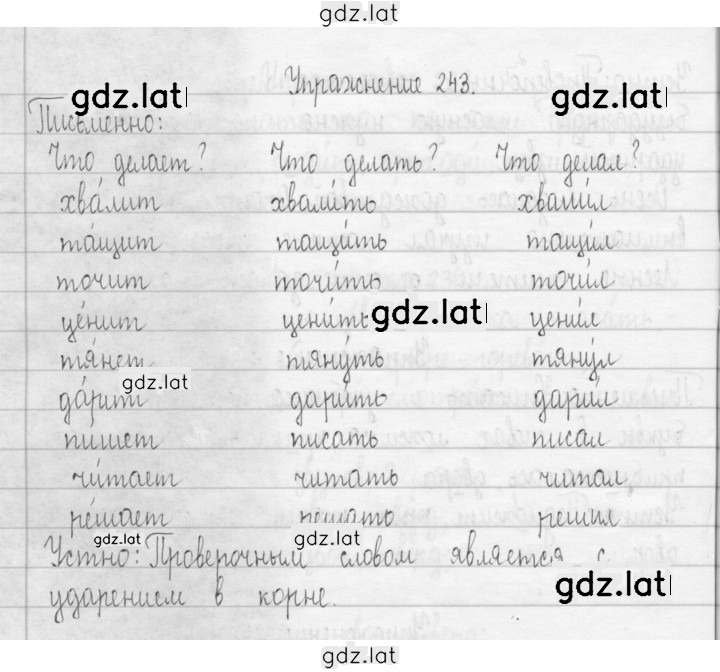 gdz.lat
Упражнение 243.
gdz.lat gdz.lat
Письменно:
Что делает? Что делать? Что делал?
хва́лит хвали́ть хвали́л
та́щит тащи́ть тащи́л
точит точи́ть точи́л
це́нит цени́ть gdz.lat цени́л
тя́нет тяну́ть тяну́л
gdz.lat
да́рит дари́ть дарил
пишет писать писал
чи́тает читать читал
ре́шает решил
gdz.lat gdz.lat
Устно: Проверочным словом является с
ударением в корне.
gdz.lat
gdz.lat